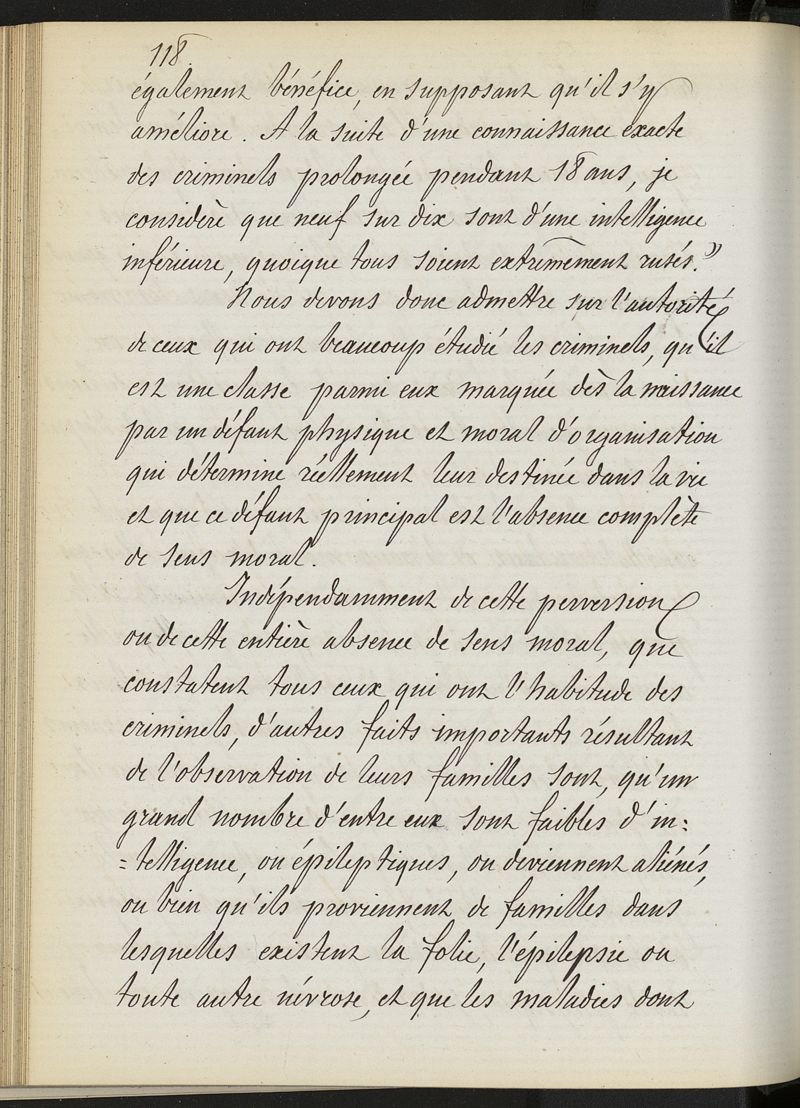 118
également bénéfice, en supposant qu'il s'y
améliore. A la suite d'une connaissance exacte
des criminels prolongée pendant 18 ans, je
considère que neuf sur dix sont d'une intelligence
inférieure, quoique tous soient extrêmement rusés."
Nous devons donc admettre sur l'autorité
de ceux qui ont beaucoup étudié les criminels, qu'il
est une classe parmi eux marquée dès la naissance
par un défaut physique et moral d'organisation
qui détermine réellement leur destinée dans la vie
et que ce défaut principal est l'absence complète
de sens moral.
Indépendamment de cette perversion
ou de cette entière absence de sens moral, que
constatent tous ceux qui ont l'habitude des
criminels, d'autres faits importants résultant
de l'observation de leurs familles sont, qu'un
grand nombre d'entre eux sont faibles d'in=
=telligence, ou épileptiques, ou deviennent aliénés,
ou bien qu'ils proviennent de familles dans
lesquelles existent la folie, l'épilepsie ou
toute autre névrose, et que les maladies dont